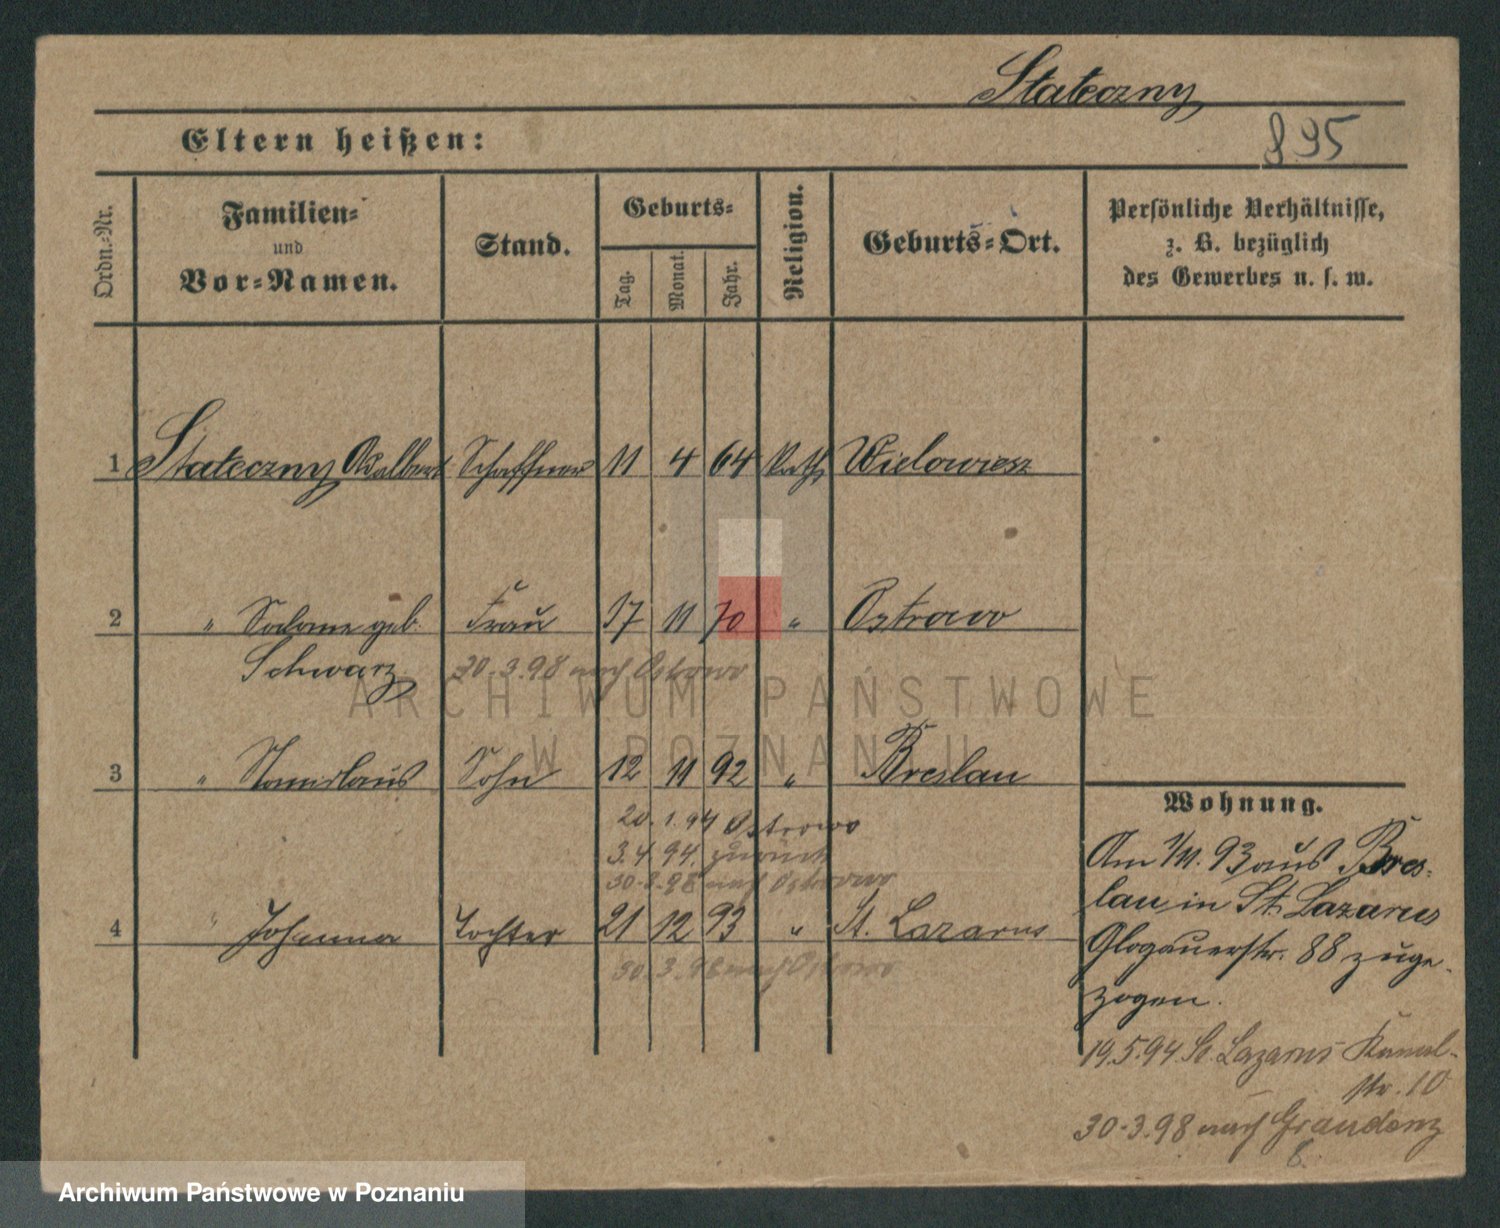 Stateczny
895
Eltern heißen:
Ordn.-Nr.
Familien-
und
Vor-Namen.
Stand.
Geburts-
Tag.
Monat.
Jahr.
Religion.
Geburts-Ort.
Persönliche Verhältnisse,
z. B. bezüglich
des Gewerbes u. s. w.
1 Stateczny Adalbert Schaffner 11 4 64 Kath. Wielowiesz
2 " Salome geb. Frau 17 11 70 " Ostrowo
Schwarz 30.3.98 nach Ostrowo
3 " Stanislaus Sohn 12 11 92 " Breslau
20.1.94 Ostrowo
3.4.94. zurück
30.3.98 nach Ostrowo
4 " Johanna Tochter 21 12 93 " St. Lazarus
30.3.98 nach Ostrowo
Wohnung.
Am 1/11. 93 aus Bres-
lau in St. Lazarus
Glogauerstr. 88 zuge-
zogen.
19.5.94 St. Lazarus Kanal-
str. 10
30.3.98 nach Graudenz
8.
ARCHIWUM PAŃSTWOWE
W POZNANIU
Archiwum Państwowe w Poznaniu